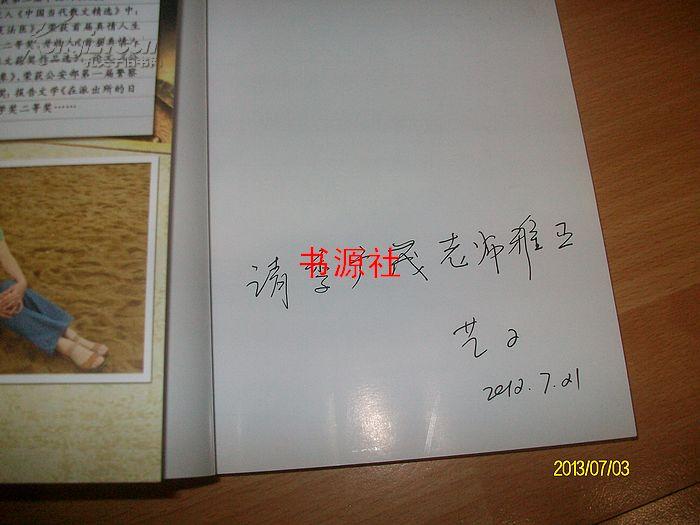 人《中国当代散文精选》中;
法医》,荣获首届真情人生
二等奖
象》,荣获公安部第一届警察
奖,报告文学《在派出所的日
学奖二等奖……
孔夫子旧书网
请李广茂老师雅正
书源社
艺人
2012.7.21
2013/07/03